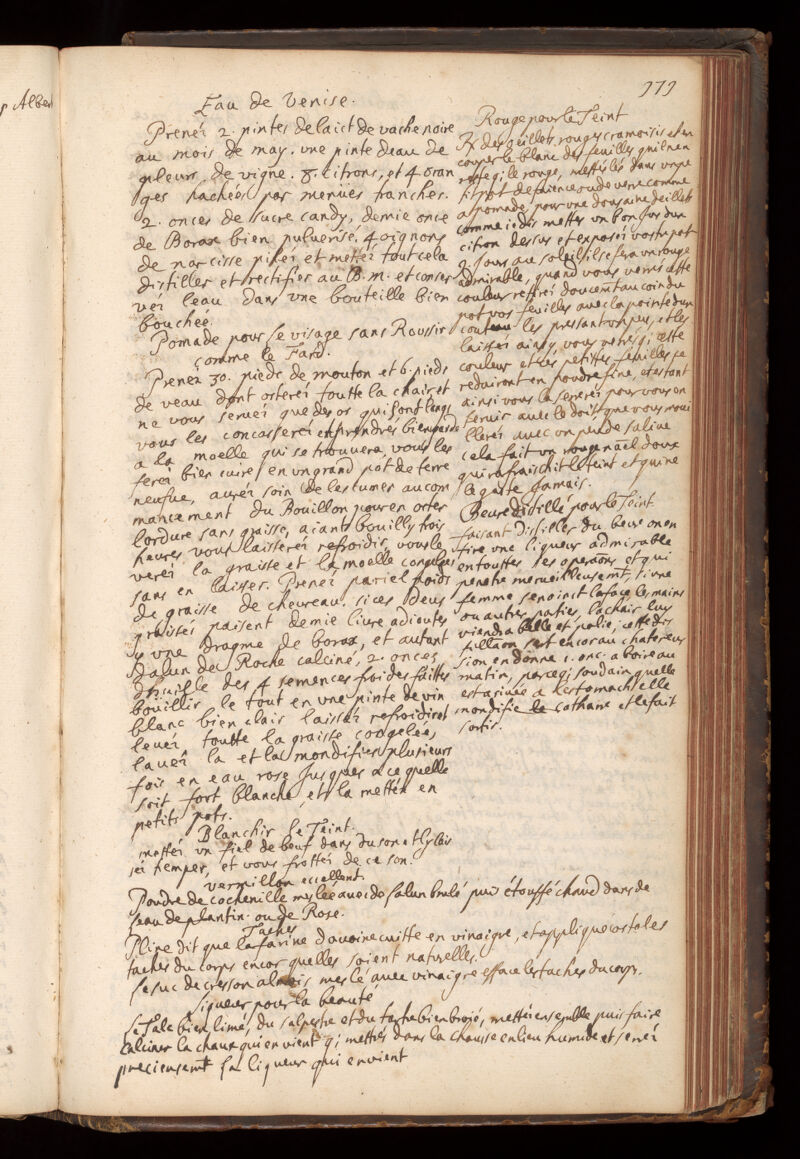 s Albert
979
Eau de Venise.
Prenéz 2. pintes de laict de vache noire
au mois de may. une pinte deau de
pleurs de vigne. 8. citrons, et 4 oran
ges hachées par menües tranches.
2. onces de sucre candy, demie once
de Borax bien puluerisé, 4 oignons
de narcisse pilez et mettéz tout cela
distiller et rectifier au B. m. et conser
véz leau dans une bouteille bien
bouchée.
Pomade pour le visage sans Roussir
comme le Fard.
Prenez 30. pieds de mouton et 6. pieds
de veau dont osteréz toutte la chair, et
ne vous seruéz que des os qui sont longs
vous les concasseréz en prendrés bien garde
a la moelle qui se trouuera, vous les
feréz bien cuire en un grand pot de terre
neufue, auréz soin de lescumer au com
mancement du Bouillon pour en oster
lordure sans graisse, aiants bouilly trois
heures vous laisseréz refroidir, vous le
veréz la graisse et la moelle congelées
sans en laisser. Prenéz pariel poids
de graisse de cheureau. si ces deux
graisses paisent demie liure adioutes
y une dragme de borax, et autant
dalun de Roche calciné, 2. onces
dhuisle des 4 semences froides faittes
bouillir le tout en une pinte de vin
blanc bien clair laisséz refroidir et
leuéz toutte la graisse congelée,
lauéz la et la mondifiés plusieurs
fois en eau rose jusques a ce quelle
soit fort blanche, et la mettéz en
petits pots.
Blanchir le Teint.
mettéz un fiel de beuf dans du son et ly lais
séz tremper, et vous frottéz de ce son.
vermillon excellent
Poudre de cochenille meslée auec de lalun brulé puis étouffé chaud dans de
leau de plantin. ou de Rose.
Taches
Pline dit que la farine davoine cuitte en vinaigre, et appliquée oste les
taches du corps encor quelles soient naturelles.
Le suc de cresson alenois meslé auec vinaigre efface les taches du corps.
Liqueur pour la beauté
Le Talc bien limé, du salpestre et du tartre bien broié, mettéz ensemble puis faire
calciner la chaux qui en vient qi mettrés dans la chausse en lieu humide et seruéz
precieusemt la liqueur qui en vient
Rouge pour le Teint
des oeillets rouges cramoisis et en
couper le blanc des feuilles quil n'en
reste qi le rouge, mettés lés dans un pe
tit pot de faience ou de verre comme
a pomade, pour une dousaine deillets
comme ie dis mettes un bon jus dun
citron dessus et exposéz vostre pot
9. jours au soleil il se fera un rouge
admirable, quand vous verrés cette
couleur retiréz doucemt au coin du
pot vos feuilles auec la pointe dun
couteau les pressant un peu, et les
laisséz ainsy, vous verés qi cette
couleur et lés petittes feuilles se
reduiront en poudre fine, et estant
ainsi vous la seréréz pour vous en
seruir auec le doit que vous moui
lleréz avec un peu de saliue
cela fait un rouge naël doux
qui rafraischit le teint et qui ne
le gaste Jamais.
Beure distillé pour le Teint
faisant distiller du beure on en
tire une liqueur admirable
en touttes ses operaons et qui
penetre merueilleusemt, si une
femme sen oinct la face les mains
ou autres parties, la chair luy
viendra belle et polie, cette dis
tillaon sert encor au chatereux
si on en donne 1. onc. a boire au
matin, parceqi soudain quelle
est ariuée a lestomach elle
mondifie le cathare et le fait
sortir.